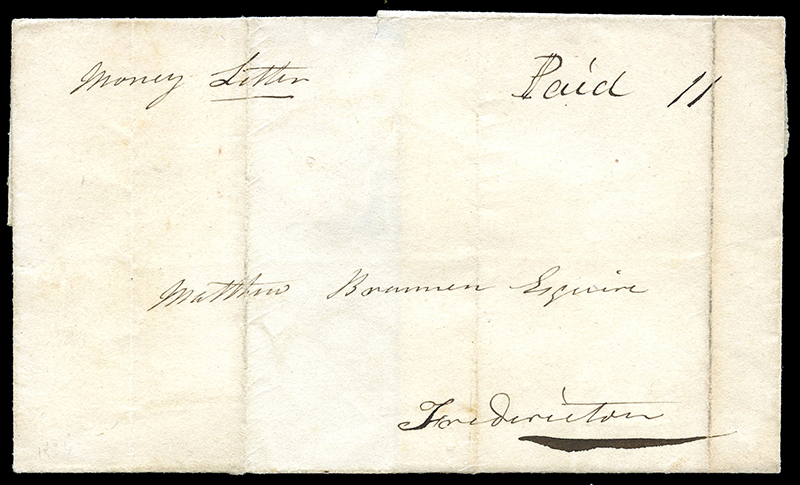 Money Letter Paid 11
Matthew Brannen Esquire
Fredericton